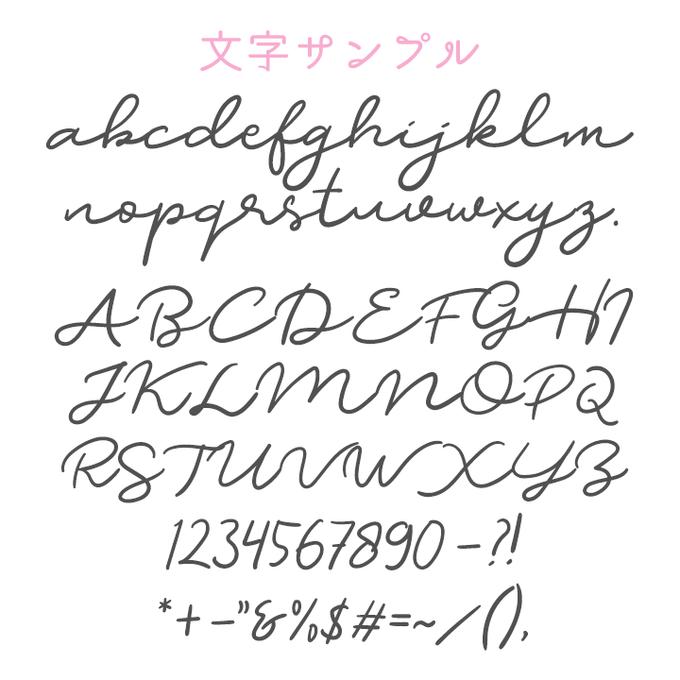 文字サンプル
abcdefghijklm
nopqrstuvwxyz.
ABCDEFGHI
JKLMNOPQ
RSTUVWXYZ
1234567890 -?!
*+-"&%$#=~/(),